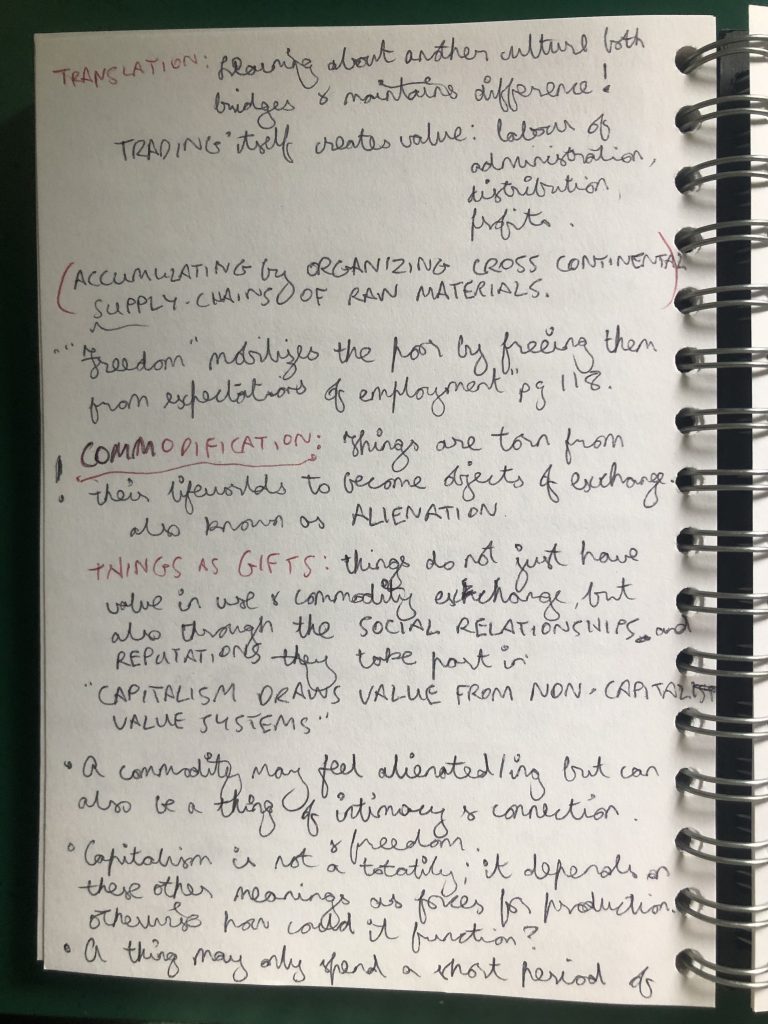 TRANSLATION: Learning about another culture both
bridges & maintains difference!
TRADING itself creates value: labour of
administration,
distribution,
profits.
(ACCUMULATING by ORGANIZING CROSS CONTINENTAL
SUPPLY-CHAINS OF RAW MATERIALS.)
""Freedom" mobilizes the poor by freeing them
from expectations of employment" pg 118.
! COMMODIFICATION: Things are torn from
their lifeworlds to become objects of exchange.
also known as ALIENATION
THINGS AS GIFTS: things do not just have
value in use & commodity exchange, but
also through the SOCIAL RELATIONSHIPS and
REPUTATIONS they take part in
"CAPITALISM DRAWS VALUE FROM NON-CAPITALIST
VALUE SYSTEMS"
• A commodity may feel alienated/ing but can
also be a thing of intimacy & connection.
& freedom.
• Capitalism is not a totatily; it depends on
these other meanings as forces for production.
otherwise how could it function?
• A thing may only spend a short period of